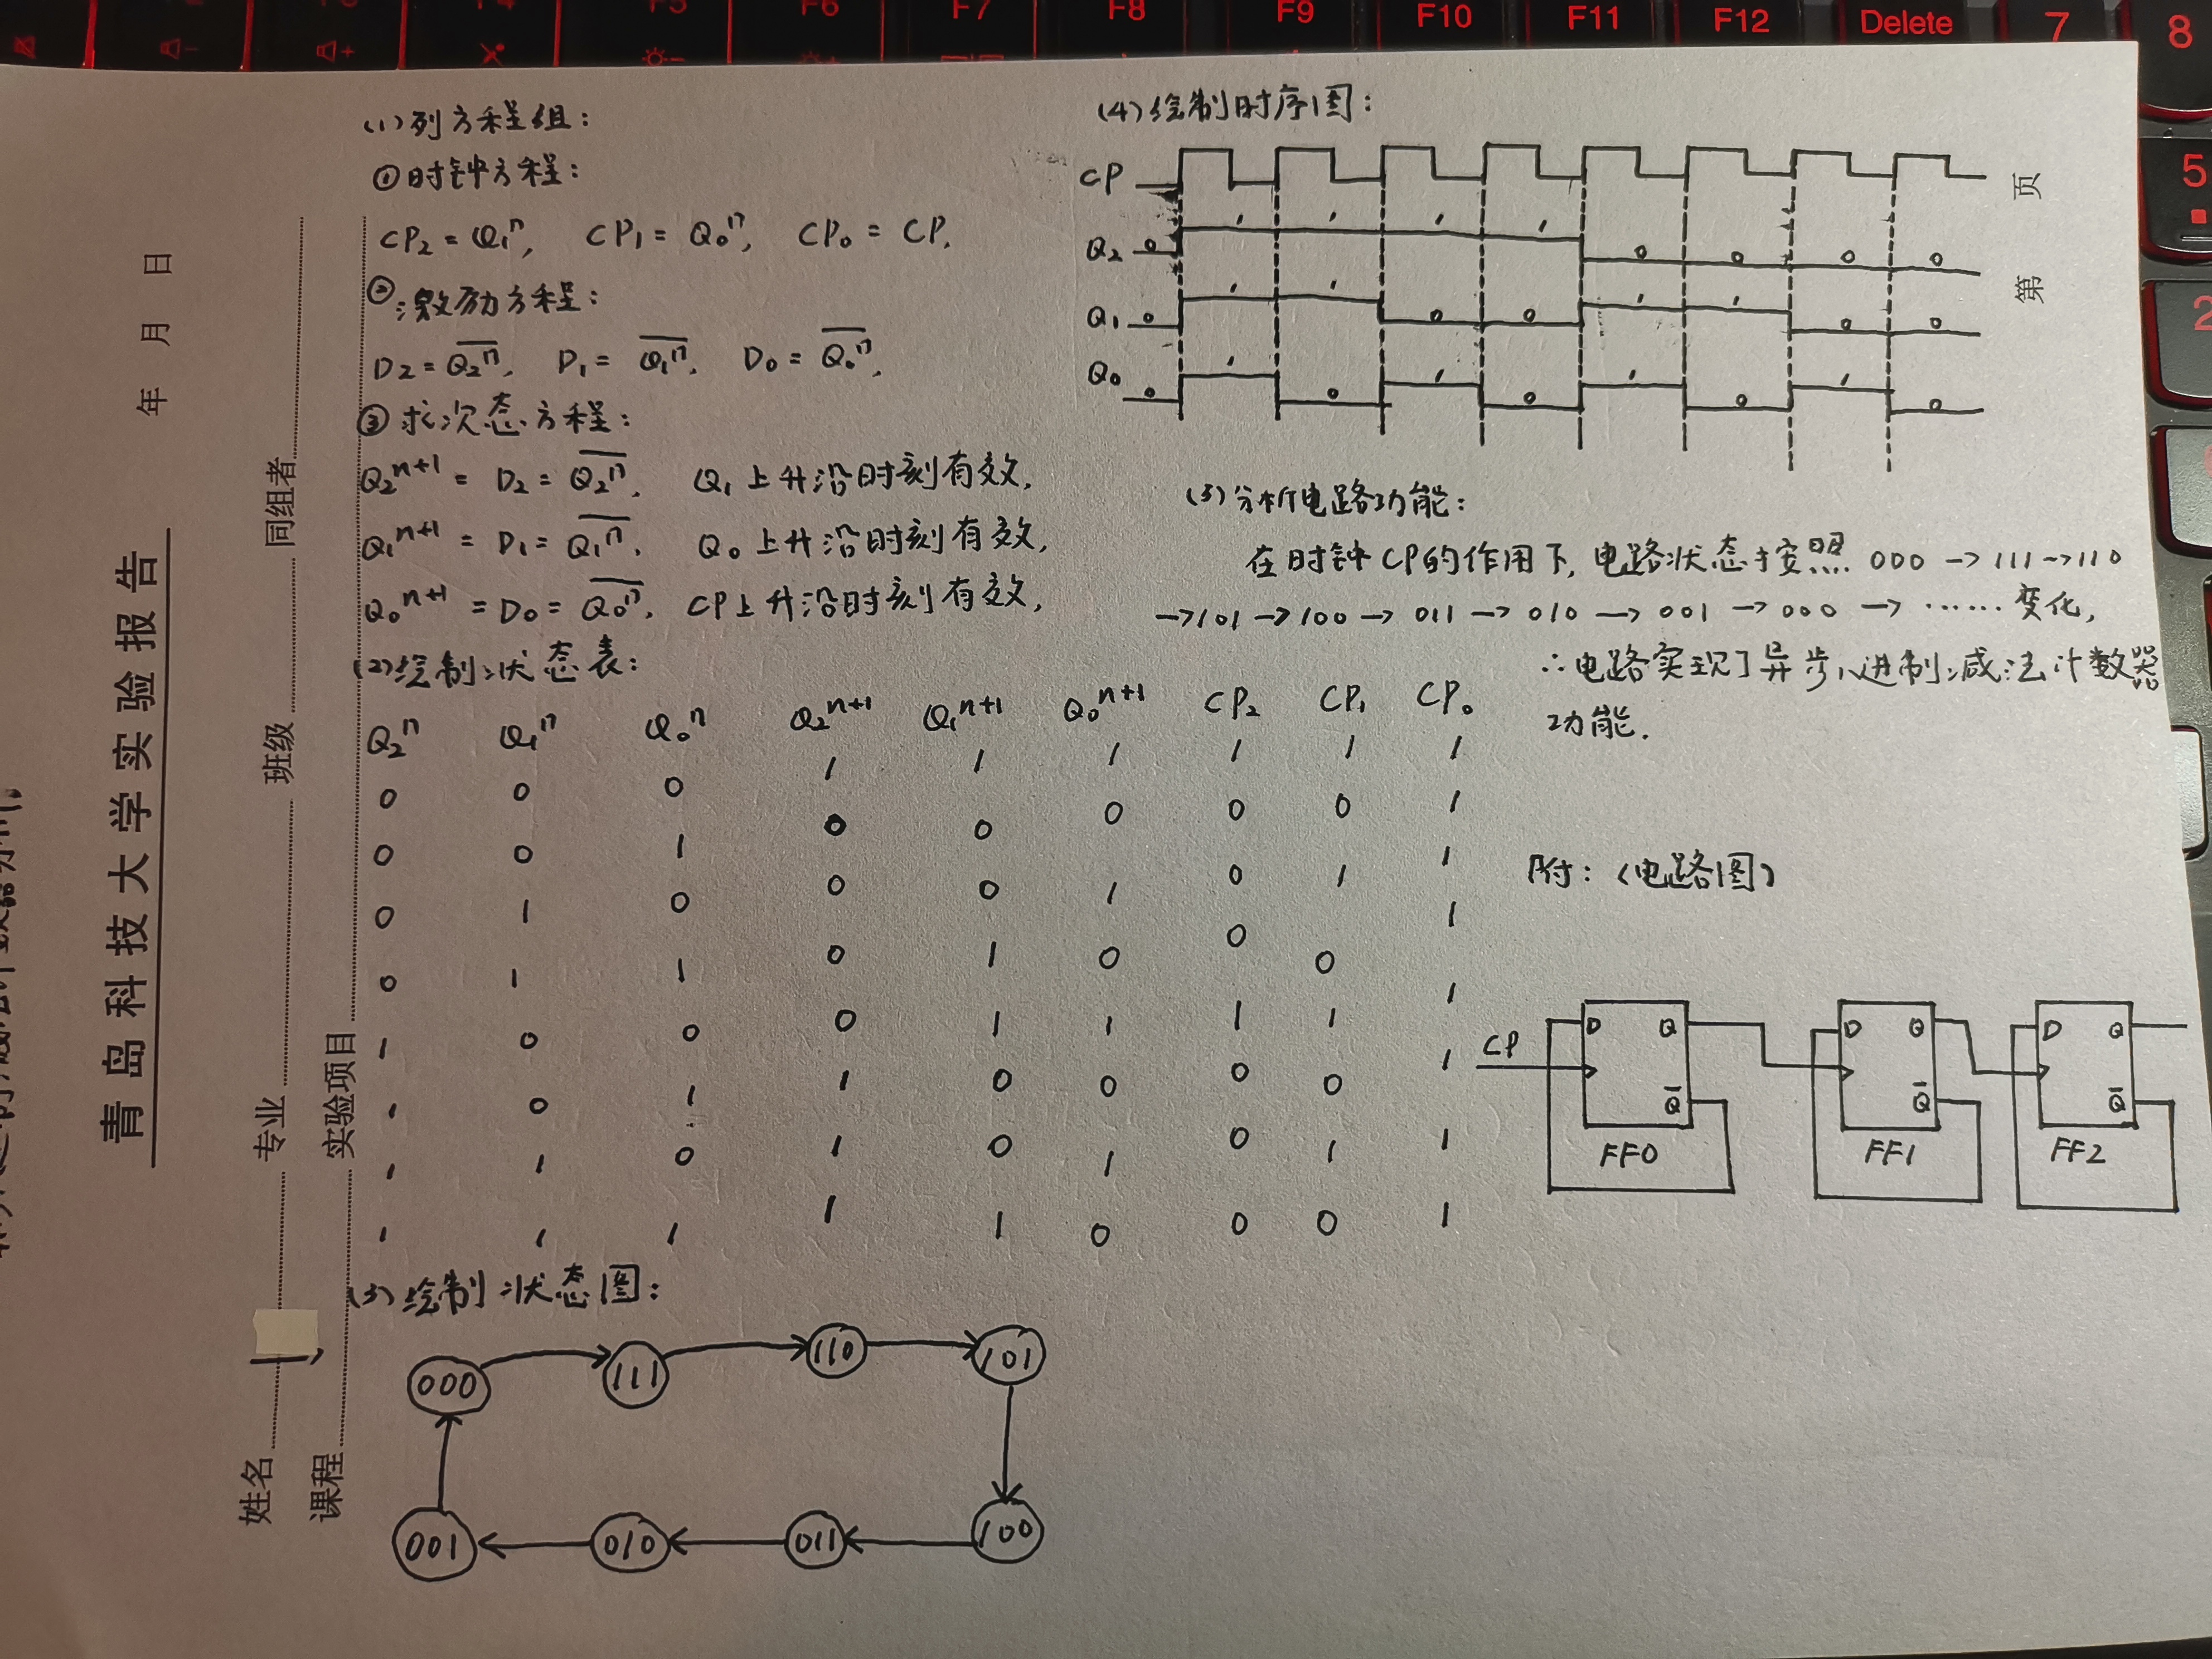 F4
F5
F6
F7
F8
F9
F10
F11
F12
Delete
7
8
5
2
青岛科技大学实验报告
年 月 日
姓名 专业 班级 同组者
课程 实验项目
第 页
(1)列方程组:
①时钟方程:
CP₂ = Q₁ⁿ, CP₁ = Q₀ⁿ, CP₀ = CP.
②激励方程:
D₂ = \overline{Q₂ⁿ}, D₁ = \overline{Q₁ⁿ}, D₀ = \overline{Q₀ⁿ},
③求次态方程:
Q₂ⁿ⁺¹ = D₂ = \overline{Q₂ⁿ}, Q₁上升沿时刻有效,
Q₁ⁿ⁺¹ = D₁ = \overline{Q₁ⁿ}, Q₀上升沿时刻有效,
Q₀ⁿ⁺¹ = D₀ = \overline{Q₀ⁿ}, CP上升沿时刻有效,
(2)绘制状态表:
Q₂ⁿ Q₁ⁿ Q₀ⁿ Q₂ⁿ⁺¹ Q₁ⁿ⁺¹ Q₀ⁿ⁺¹ CP₂ CP₁ CP₀
0 0 0 1 1 1 1 1 1
0 0 1 0 0 0 0 0 1
0 1 0 0 0 1 0 1 1
0 1 1 0 1 0 0 0 1
1 0 0 0 1 1 1 1 1
1 0 1 1 0 0 0 0 1
1 1 0 1 0 1 0 1 1
1 1 1 1 1 0 0 0 1
(3)绘制状态图:
000 111 110 101
001 010 011 100
(4)绘制时序图:
CP
Q₂ 0 1 1 1 1 0 0 0 0
Q₁ 0 1 1 0 0 1 1 0 0
Q₀ 0 1 0 1 0 1 0 1 0
(5)分析电路功能:
在时钟CP的作用下,电路状态按照 000 → 111 → 110
→ 101 → 100 → 011 → 010 → 001 → 000 → ······ 变化,
∴电路实现了异步八进制减法计数器
功能.
附:(电路图)
CP D Q \overline{Q} FF0
D Q \overline{Q} FF1
D Q \overline{Q} FF2